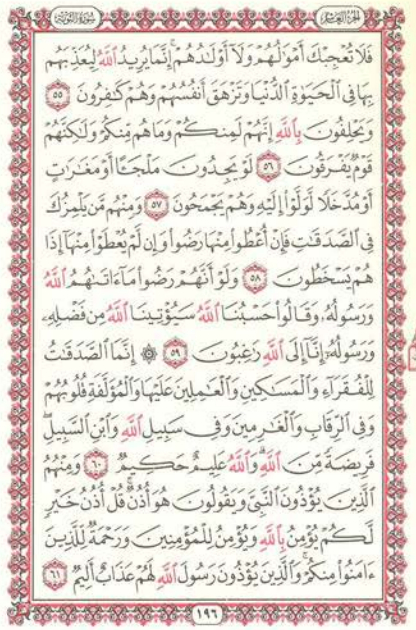 الجزء العاشر
سورة التوبة
فَلَا تُعْجِبْكَ أَمْوَٰلُهُمْ وَلَآ أَوْلَٰدُهُمْ ۚ إِنَّمَا يُرِيدُ ٱللَّهُ لِيُعَذِّبَهُم
بِهَا فِى ٱلْحَيَوٰةِ ٱلدُّنْيَا وَتَزْهَقَ أَنفُسُهُمْ وَهُمْ كَٰفِرُونَ ٥٥
وَيَحْلِفُونَ بِٱللَّهِ إِنَّهُمْ لَمِنكُمْ وَمَا هُم مِّنكُمْ وَلَٰكِنَّهُمْ
قَوْمٌ يَفْرَقُونَ ٥٦ لَوْ يَجِدُونَ مَلْجَـًٔا أَوْ مَغَٰرَٰتٍ
أَوْ مُدَّخَلًا لَّوَلَّوْا۟ إِلَيْهِ وَهُمْ يَجْمَحُونَ ٥٧ وَمِنْهُم مَّن يَلْمِزُكَ
فِى ٱلصَّدَقَٰتِ فَإِنْ أُعْطُوا۟ مِنْهَا رَضُوا۟ وَإِن لَّمْ يُعْطَوْا۟ مِنْهَآ إِذَا
هُمْ يَسْخَطُونَ ٥٨ وَلَوْ أَنَّهُمْ رَضُوا۟ مَآ ءَاتَىٰهُمُ ٱللَّهُ
وَرَسُولُهُۥ وَقَالُوا۟ حَسْبُنَا ٱللَّهُ سَيُؤْتِينَا ٱللَّهُ مِن فَضْلِهِۦ
وَرَسُولُهُۥٓ إِنَّآ إِلَى ٱللَّهِ رَٰغِبُونَ ٥٩ ۞ إِنَّمَا ٱلصَّدَقَٰتُ
لِلْفُقَرَآءِ وَٱلْمَسَٰكِينِ وَٱلْعَٰمِلِينَ عَلَيْهَا وَٱلْمُؤَلَّفَةِ قُلُوبُهُمْ
وَفِى ٱلرِّقَابِ وَٱلْغَٰرِمِينَ وَفِى سَبِيلِ ٱللَّهِ وَٱبْنِ ٱلسَّبِيلِ ۖ
فَرِيضَةً مِّنَ ٱللَّهِ ۗ وَٱللَّهُ عَلِيمٌ حَكِيمٌ ٦٠ وَمِنْهُمُ
ٱلَّذِينَ يُؤْذُونَ ٱلنَّبِىَّ وَيَقُولُونَ هُوَ أُذُنٌ ۚ قُلْ أُذُنُ خَيْرٍ
لَّكُمْ يُؤْمِنُ بِٱللَّهِ وَيُؤْمِنُ لِلْمُؤْمِنِينَ وَرَحْمَةٌ لِّلَّذِينَ
ءَامَنُوا۟ مِنكُمْ ۚ وَٱلَّذِينَ يُؤْذُونَ رَسُولَ ٱللَّهِ لَهُمْ عَذَابٌ أَلِيمٌ ٦١
١٩٦